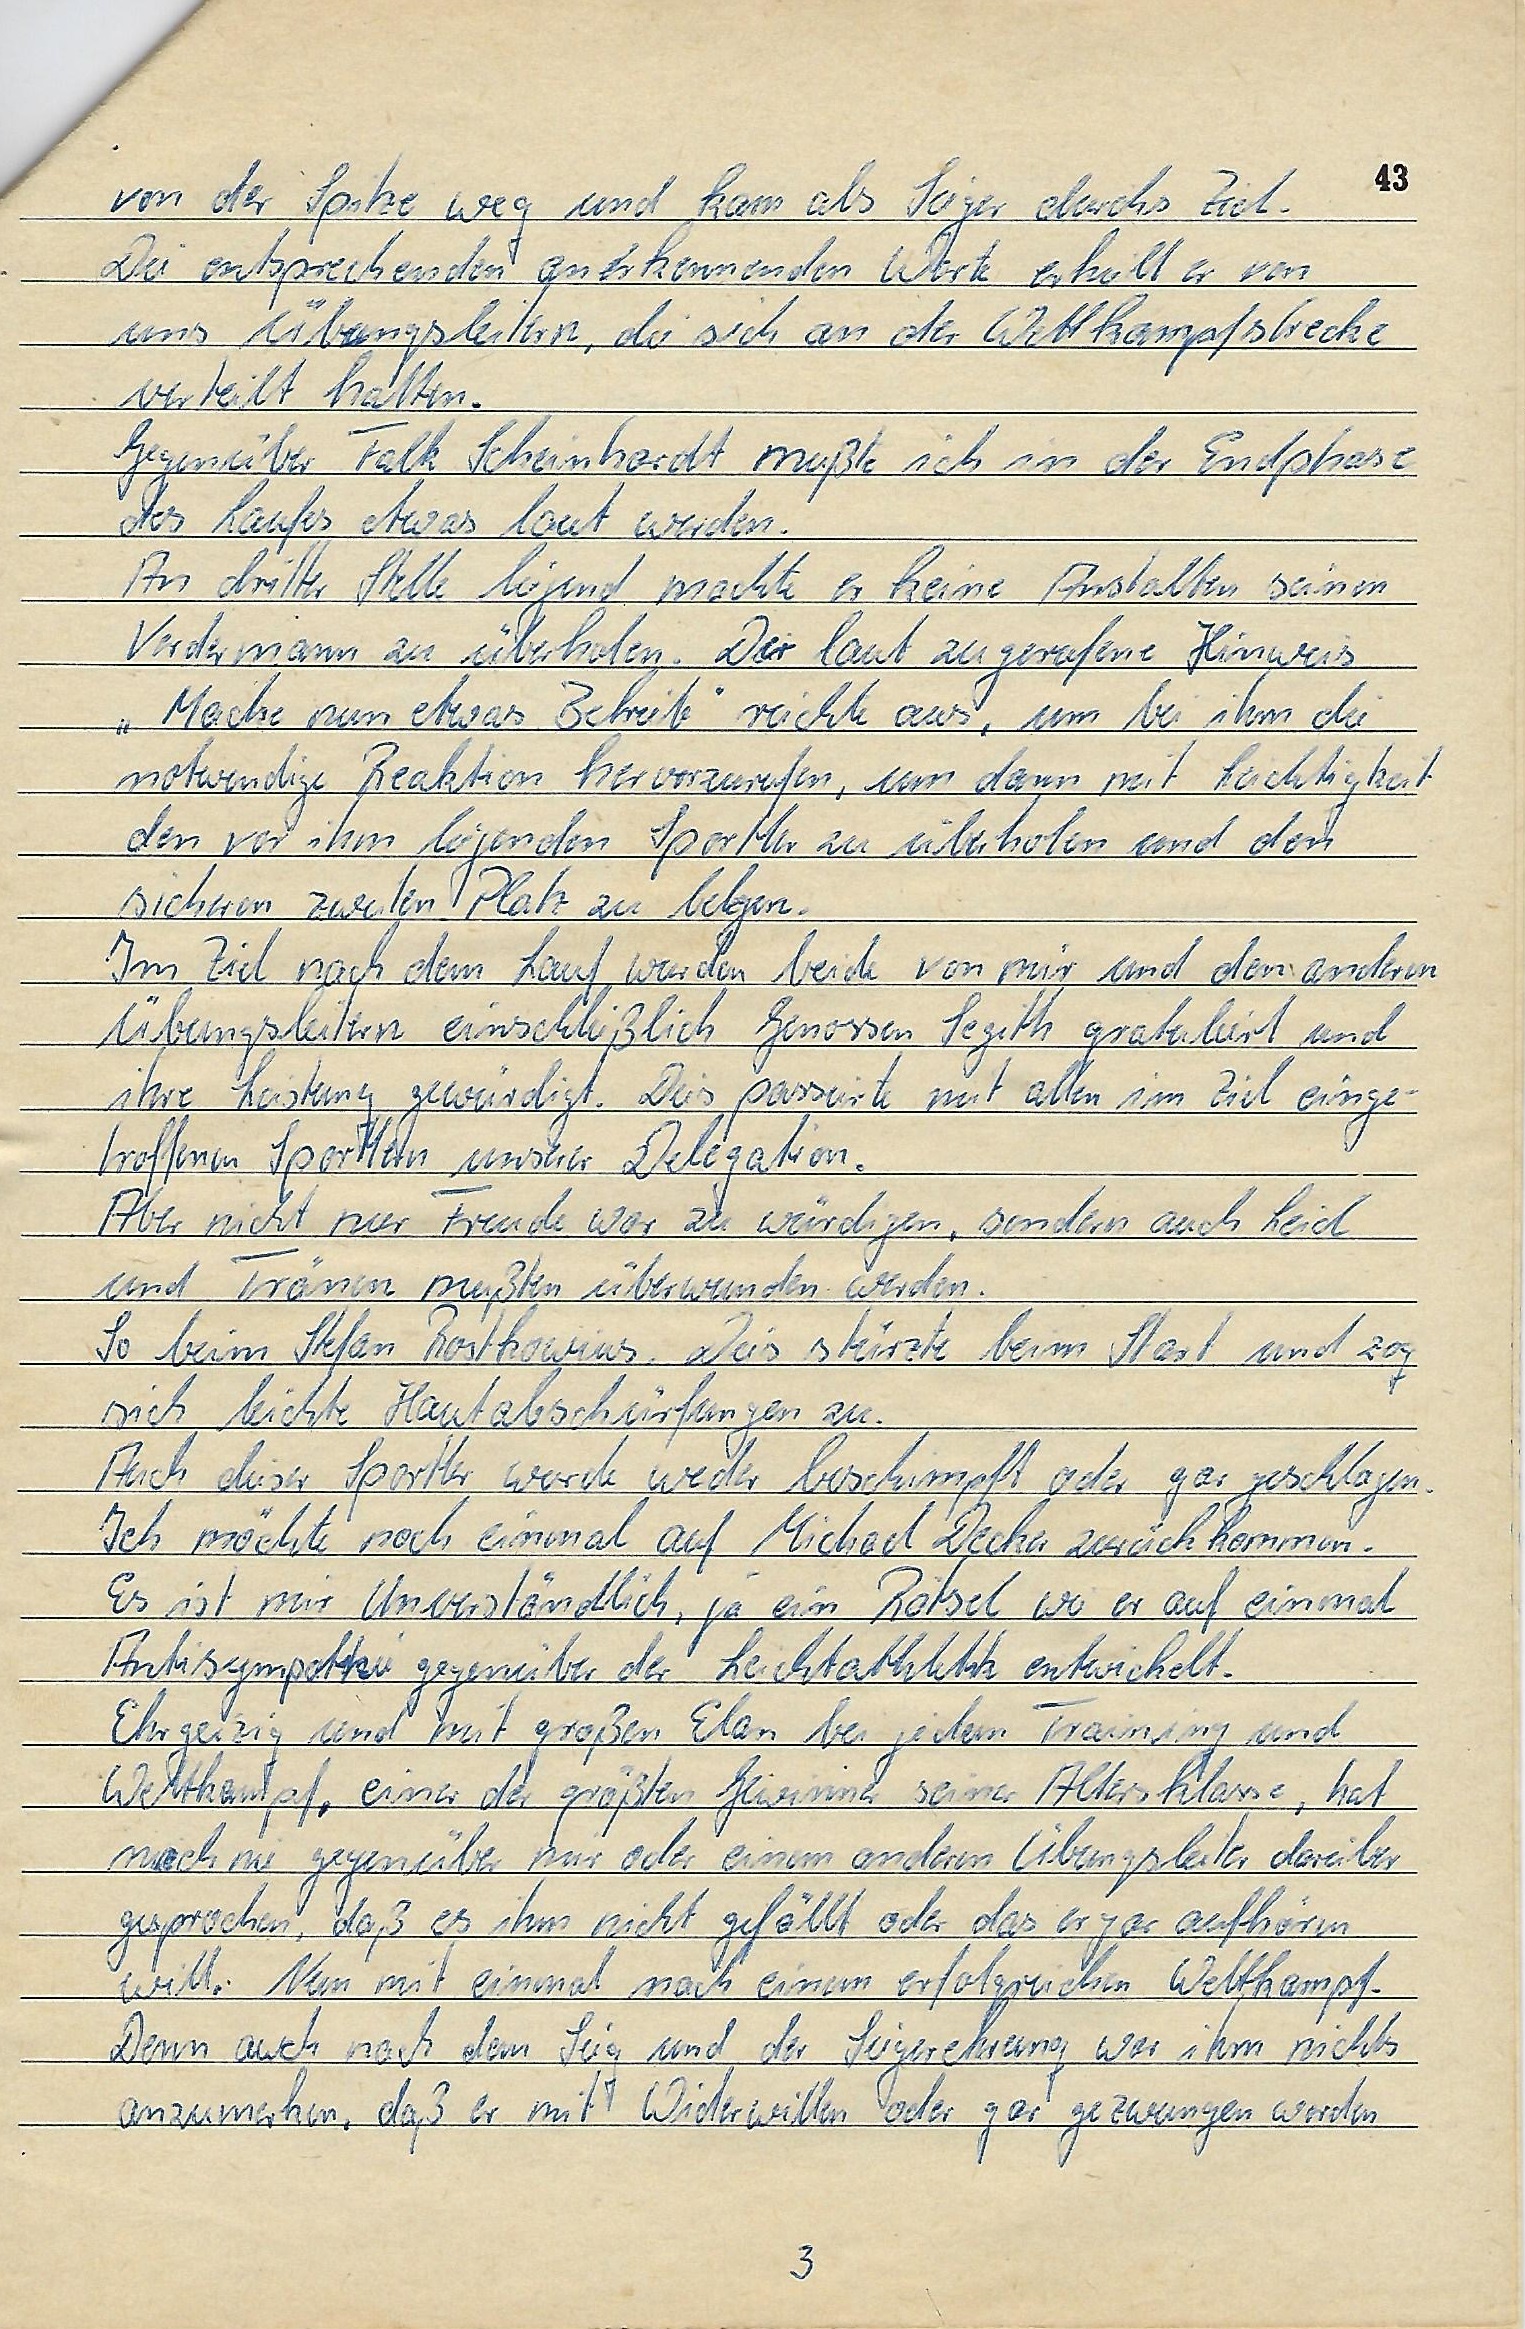 43
von der Spitze weg und kam als Sieger durchs Ziel.
Die entsprechenden anerkennenden Worte erhielt er von
uns Übungsleitern, die sich an der Wettkampfstrecke
verteilt hatten.
Gegenüber Falk Scheinhardt mußte ich in der Endphase
des Laufes etwas laut werden.
An dritter Stelle liegend machte er keine Anstalten seinen
Vordermann zu überholen. Der laut zugerufene Hinweis
„Mache nun etwas Betrieb" reichte aus, um bei ihm die
notwendige Reaktion hervorzurufen, um dann mit Leichtigkeit
den vor ihm liegenden Sportler zu überholen und den
sicheren zweiten Platz zu belgen.
Im Ziel nach dem Lauf wurden beide von mir und den anderen
Übungsleitern einschließlich Genossen Segith gratuliert und
ihre Leistung gewürdigt. Dies passierte mit allen im Ziel einge-
troffenen Sportlern unserer Delegation.
Aber nicht nur Freude war zu würdigen, sondern auch Leid
und Tränen mußten überwunden werden.
So beim Stefan Rostkowius. Dies stürzte beim Start und zog
sich leichte Hautabschürfungen zu.
Auch dieser Sportler wurde weder beschimpft oder gar geschlagen.
Ich möchte noch einmal auf Michael Decker zurückkommen.
Es ist mir Unverständlich, ja ein Rätsel wo er auf einmal
Antisympathie gegenüber der Leichtathletik entwickelt.
Ehrgeizig und mit großen Elan bei jedem Training und
Wettkampf, einer der größten Gewinner seiner Altersklasse, hat
noch nie gegenüber mir oder einem anderen Übungsleiter darüber
gesprochen, daß es ihm nicht gefällt oder das er gar aufhören
will. Nun mit einmal nach einem erfolgreichen Wettkampf.
Denn auch nach dem Sieg und der Siegerehrung war ihm nichts
anzumerken, daß er mit Widerwillen oder gar gezwungen worden
3